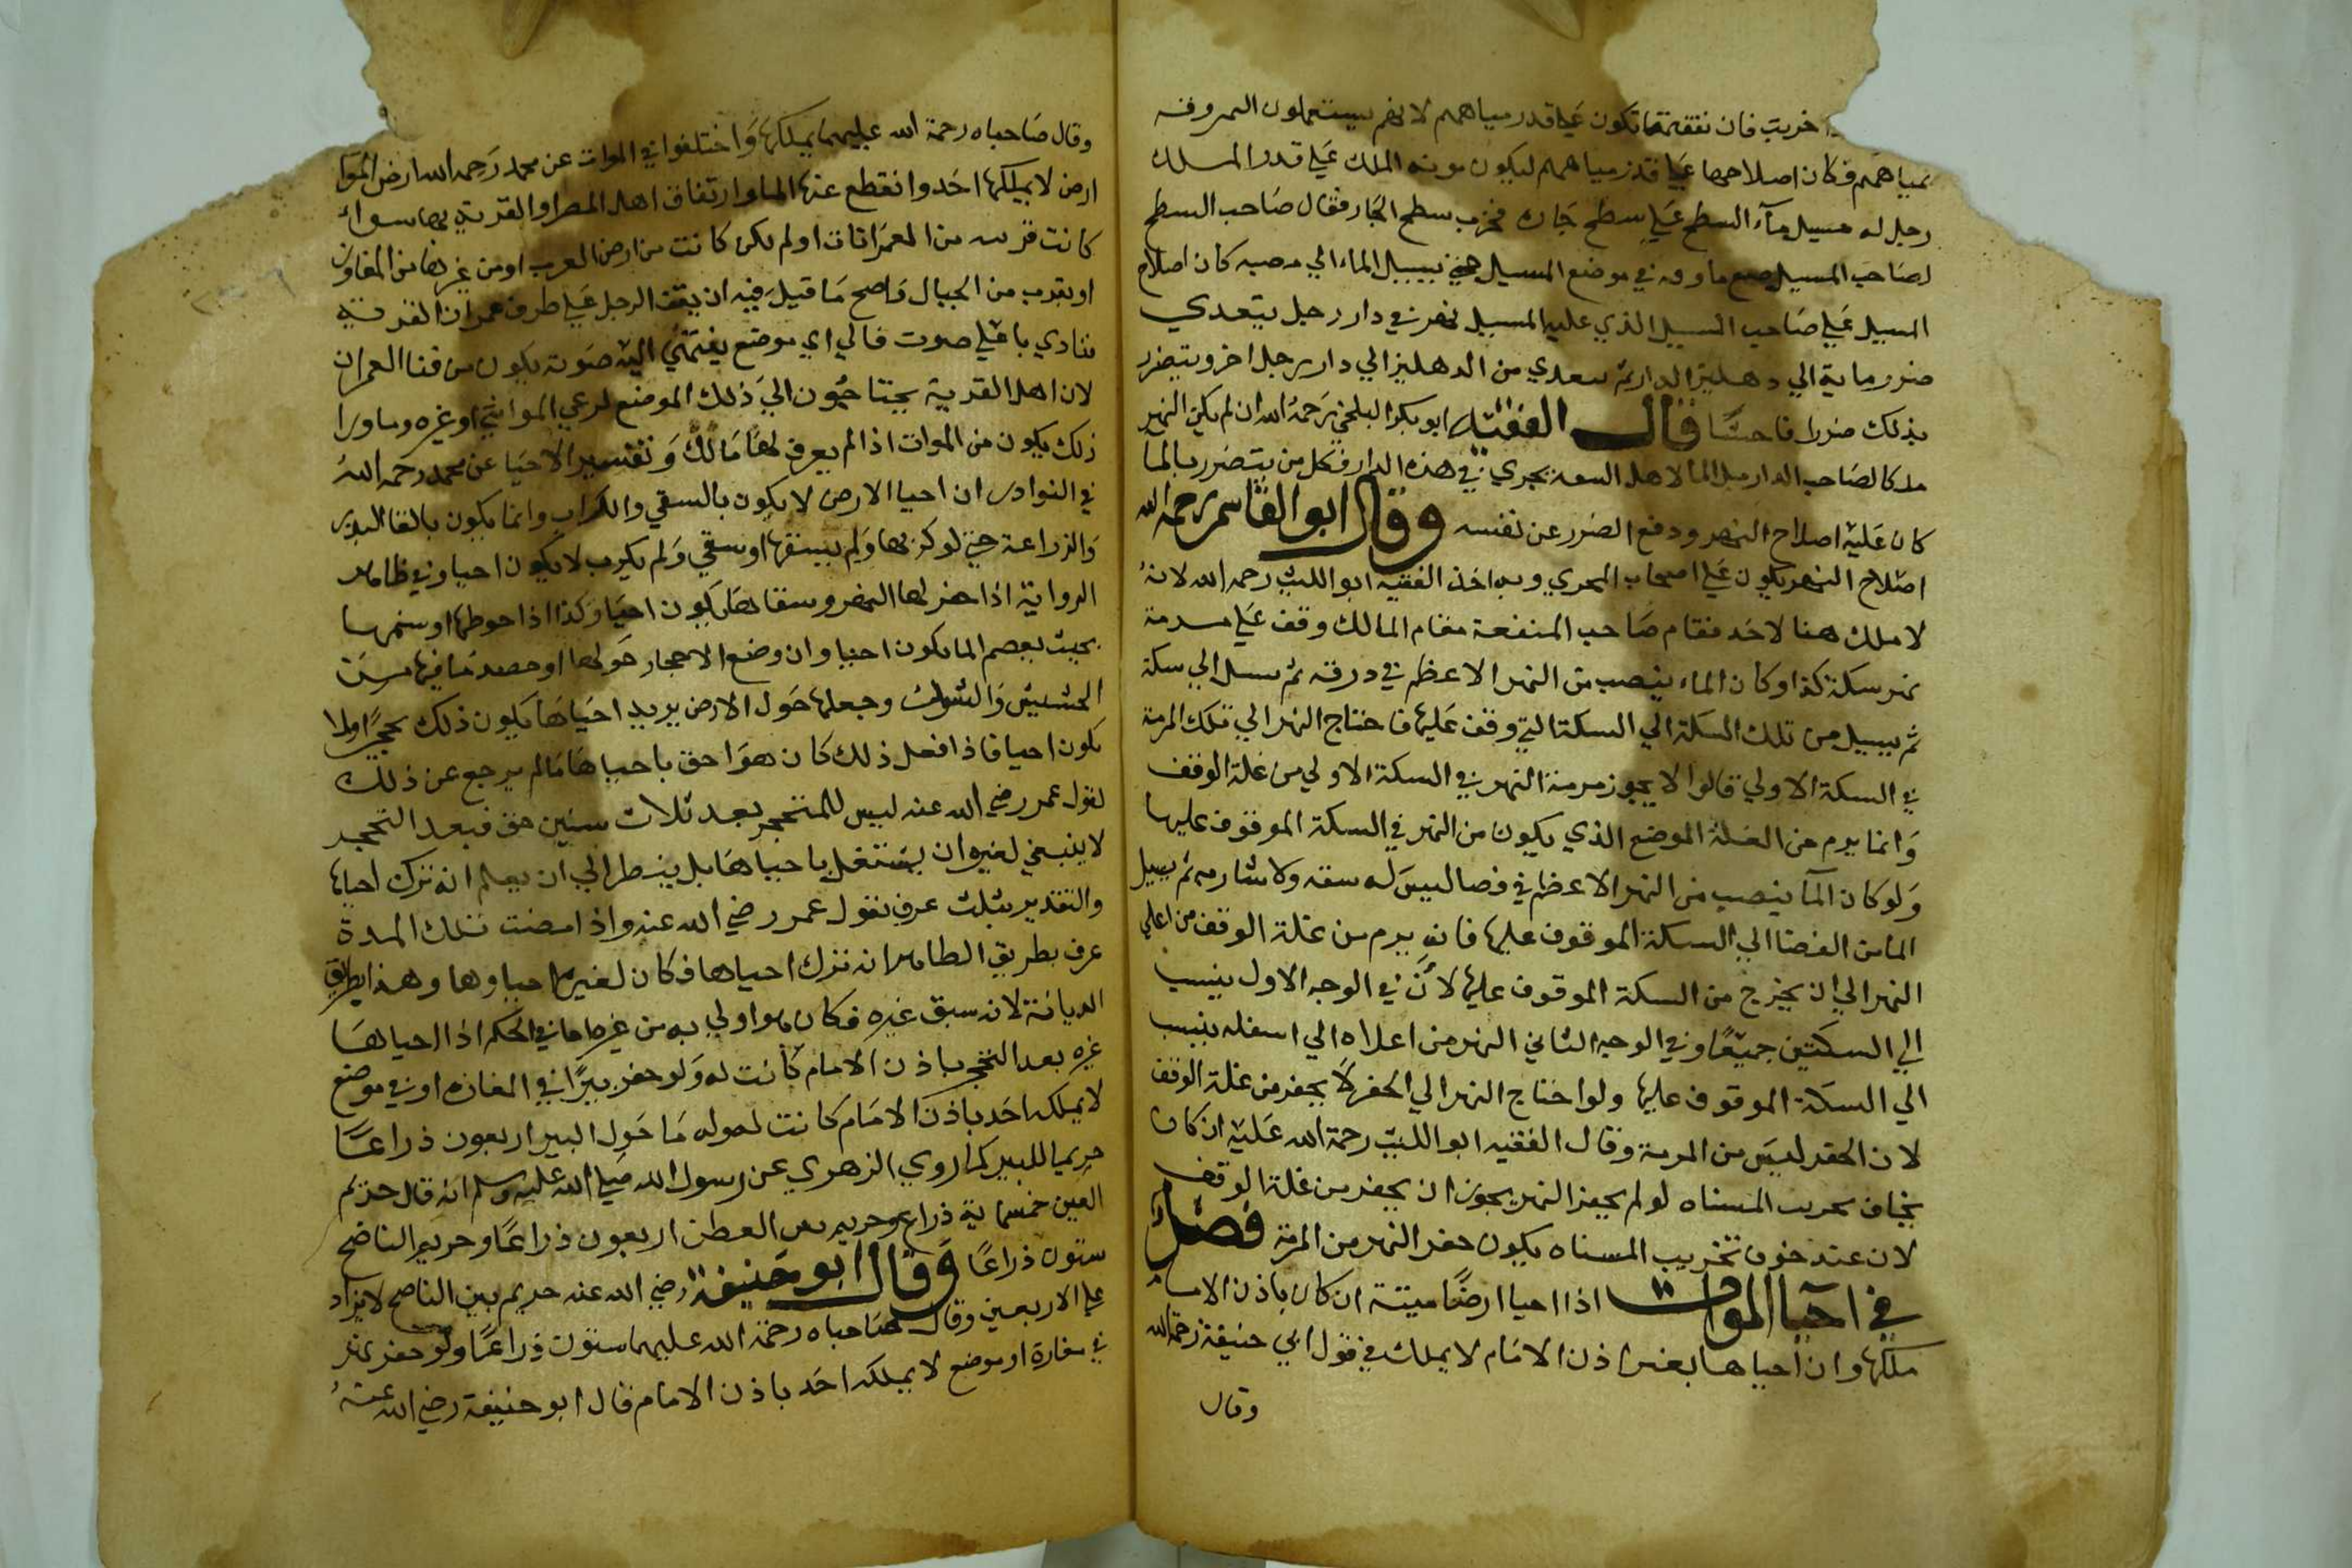 خربت فان نفقتها تكون علي قدر مياههم لانهم يستعملون المعروفه
بمياههم فكان اصلاحها علي قدر مياههم ليكون مونه الملك علي قدر الملك
رجل له مسيل مآء السطح علي سطح جاره فخرب سطح الجار فقال صاحب السطح
لصاحب المسيل في موضع المسيل حتي يسيل الماء الي مصبه كان اصلاح
المسيل علي صاحب السيل الذي عليه المسيل نهر في دار رجل يتعدي
ضرر مايه الي دهليز الدار ثم يتعدي من الدهليز الي دار رجل اخر ويتضرر
بذلك ضررا فاحشا قال الفقيه ابو بكر البلخي رحمه الله ان لم يكن النهر
ملكا لصاحب الدار بل الما لاهل يجري في هذه الدار فكل من يتضرر بالما
كان عليه اصلاح النهر ودفع الضرر عن نفسه وقال ابو القاسم رحمه الله
اصلاح النهر يكون علي اصحاب المجري وبه اخذ الفقيه ابو الليث رحمه الله لانه
لا ملك هنا لاحد فقام صاحب المنفعة مقام المالك وقف علي مرمة
نهر سكة كذا وكان الماء ينصب من النهر الاعظم في ثم الي سكة
ثم يسيل من تلك السكة الي السكة التي وقف عليها فاحتاج النهر الي تلك المرمة
في السكة الاولي قالوا لا يجوز مرمة النهر في السكة الاولي من غلة الوقف
وانما يرم من الغلة الموضع الذي يكون من النهر في السكة الموقوف عليها
ولو كان المآ ينصب من النهر الاعظم في فضا ليس له ولا ثم يسيل
الما من الفضا الي السكة الموقوف عليها فانه يرم من غلة الوقف من اعلي
النهر الي ان يخرج من السكة الموقوف عليها لان في الوجه الاول ينسب
الي السكتين جميعًا وفي الوجه الثاني النهر من اعلاه الي اسفله ينسب
الي السكة الموقوف عليها ولو احتاج النهر الي الحفر لا يحفر من غلة الوقف
لان الحفر ليس من المرمة وقال الفقيه ابو الليث رحمة الله عليه ان كان
يخاف تخريب المسناه لو لم يحفر النهر يجوز ان يحفر من غلة الوقف
لان عند خوف تخريب المسناه يكون حفر النهر من المرمة فصل
في احيا الموات اذا احيا ارضًا ميتة ان كان باذن الامام
ملكها وان احياها بغير اذن الامام لا يملك في قول ابي حنيفة رحمه الله
وقال
وقال صاحباه رحمة الله عليهما يملكها واختلفوا في الموات عن محمد رحمه الله ارض الموا
ارض لا يملكها احد وانقطع عنها الما وارتفاق اهل المصر او القرية بها سواء
كانت قريبه من العمرانات او لم يكن كانت من ارض العرب او من غيرها من المفاوز
او بقرب من الجبال واصح ما قيل فيه ان يقف الرجل علي طرف عمران القرية
فينادي باعلي صوت فالي اي موضع ينتهي اليه صوته يكون من فنا العمران
لان اهل القرية يحتاجون الي ذلك الموضع لرعي المواشي او غيره وما ورا
ذلك يكون من الموات اذا لم يعرف لها مالك وتفسير الاحيا عن محمد رحمه الله
في النوادر ان احيا الارض لا يكون بالسقي والكراب وانما يكون بالقا البذر
والزراعة حتي لو كربها ولم يسقها او سقي ولم يكرب لا يكون احيا وفي ظاهر
الرواية اذا حفر لها النهر وسقاها يكون احيا وكذا اذا حوطها او سنمها
بحيث يعصم الما يكون احيا وان وضع الاحجار حولها او حصد ما فيها من
الحشيش والشوك وجعلها حول الارض يريد احياها يكون ذلك تحجرًا ولا
يكون احيا فاذا فعل ذلك كان هو احق باحياها ما لم يرجع عن ذلك
لقول عمر رضي الله عنه ليس للمتحجر بعد ثلاث سنين حق فبعد التحجر
لا ينبغي لغيره ان يشتغل باحياها بل ينظر الي ان يعلم انه ترك احياها
والتقدير بثلث عرف بقول عمر رضي الله عنه واذا مضت تلك المدة
عرف بطريق الظاهر انه ترك احياها فكان لغيره احياوها وهذا بطريق
الديانة لانه سبق غيره فكان هو اولي به من غيره اما في الحكم اذا احياها
غيره بعد التحجر باذن الامام كانت له ولو حفر بيرًا في المفازه او في موضع
لا يملكه احد باذن الامام كانت له وله ما حول البير اربعون ذراعًا
حريما للبير كما روي الزهري عن رسول الله صلي الله عليه وسلم انه قال حريم
العين خمسماية ذراع وحريم بير العطن اربعون ذراعًا وحريم الناضح
ستون ذراعًا وقال ابو حنيفة رضي الله عنه حريم بير الناضح لا يزاد
علي الاربعين وقال صاحباه رحمة الله عليهما ستون ذراعًا ولو حفر نهر
في مفازة او موضع لا يملكه احد باذن الامام قال ابو حنيفة رضي الله عنه